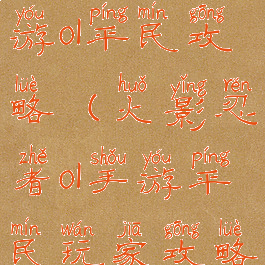 yóu píng mín gōng
游ol平民攻
lüè huǒ yǐng rěn
略（火影忍
zhě shǒu yóu píng
者ol手游平
mín wán jiā gōng lüè
民玩家攻略